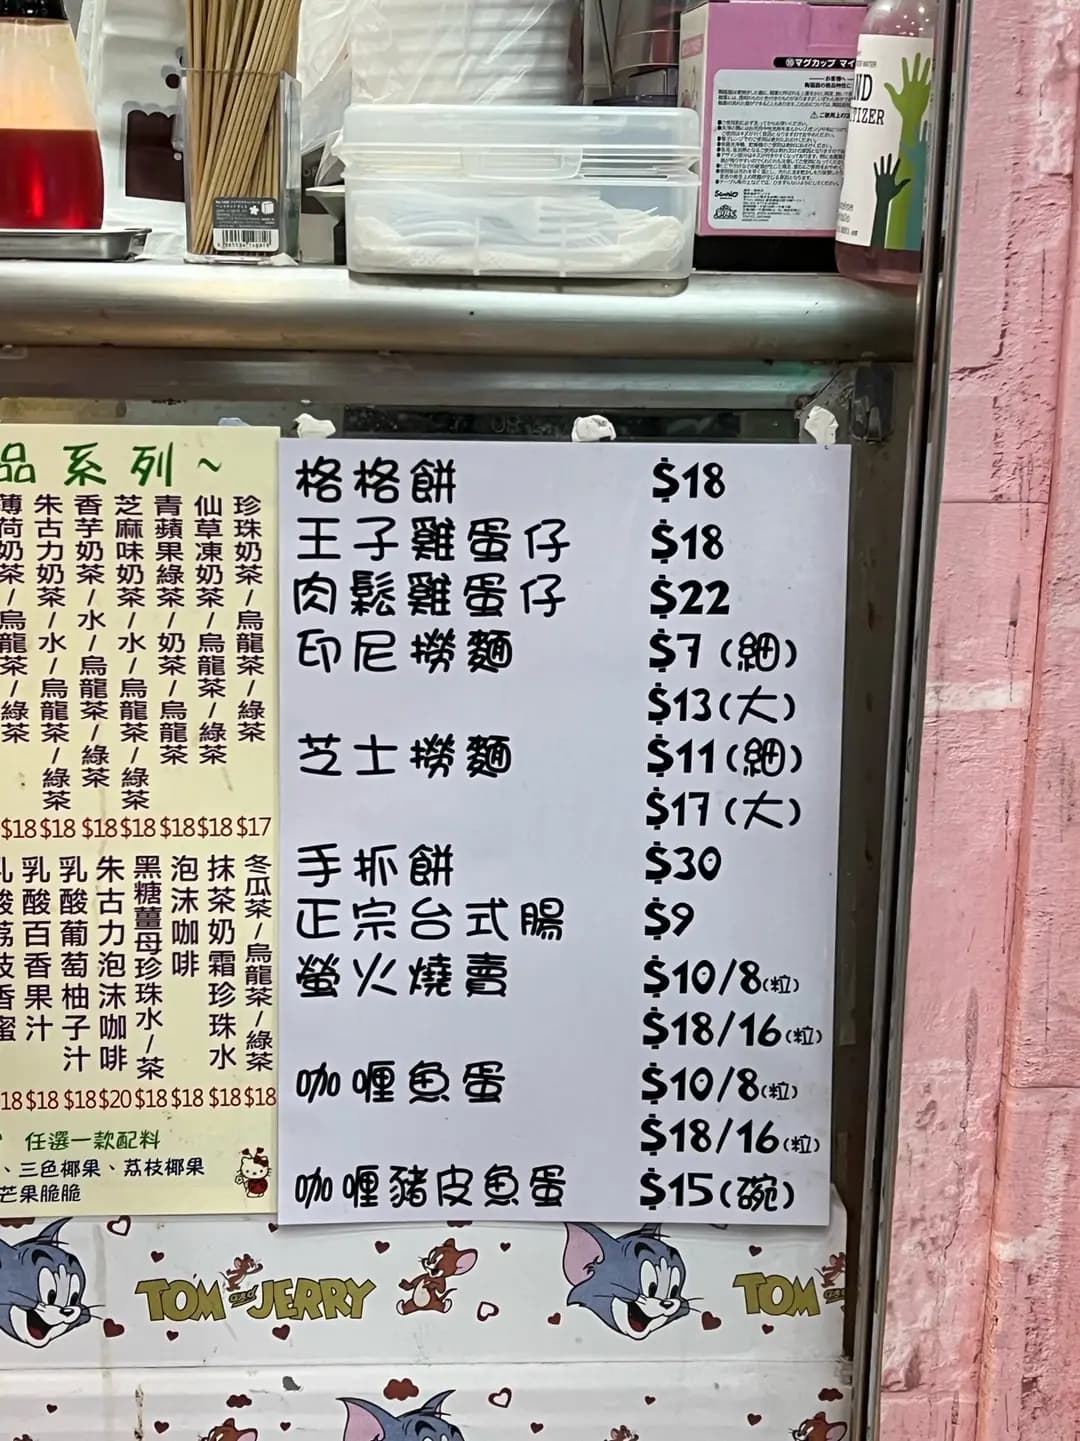 マグカップ マイ
お客様へ
Sanrio
品系列~
珍珠奶茶/烏龍茶/綠茶
仙草凍奶茶/烏龍茶/綠茶
青蘋果綠茶/奶茶/烏龍茶
芝麻味奶茶/水/烏龍茶/綠茶
香芋奶茶/水/烏龍茶/綠茶
朱古力奶茶/水/烏龍茶/綠茶
薄荷奶茶/烏龍茶/綠茶
$18 $18 $18 $18 $18 $18 $17
冬瓜茶/烏龍茶/綠茶
抹茶奶霜珍珠水
泡沫咖啡
黑糖薑母珍珠水/茶
朱古力泡沫咖啡
乳酸葡萄柚子汁
乳酸百香果汁
乳酸荔枝香蜜
18 $18 $18 $20 $18 $18 $18 $18
任選一款配料
、三色椰果、荔枝椰果
芒果脆脆
格格餅 $18
王子雞蛋仔 $18
肉鬆雞蛋仔 $22
印尼撈麵 $7(細)
$13(大)
芝士撈麵 $11(細)
$17(大)
手抓餅 $30
正宗台式腸 $9
螢火燒賣 $10/8(粒)
$18/16(粒)
咖喱魚蛋 $10/8(粒)
$18/16(粒)
咖喱豬皮魚蛋 $15(碗)
TOM and JERRY
TOM